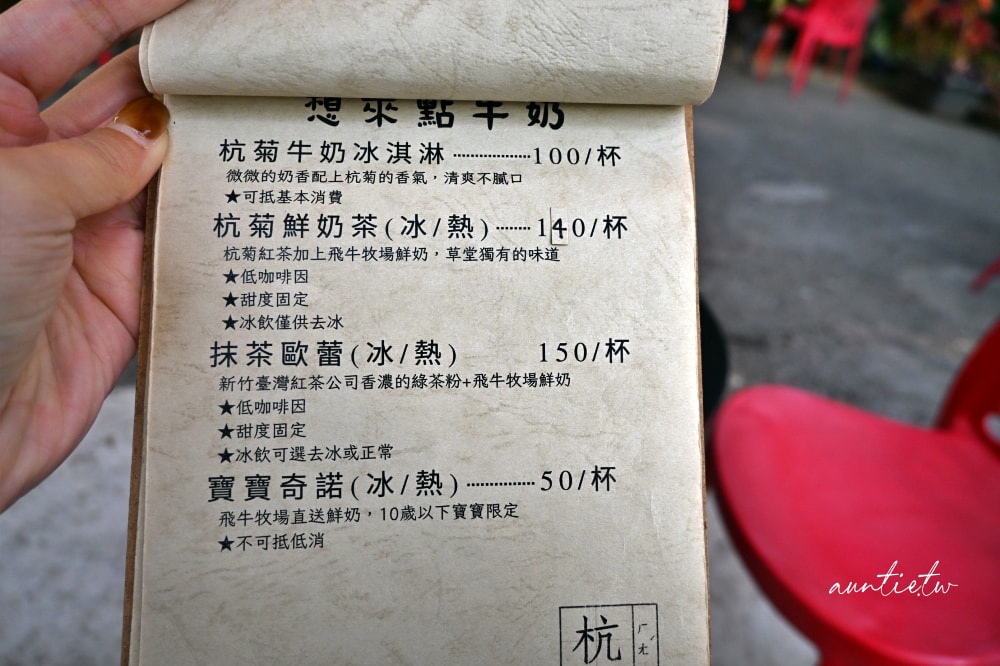 想來點牛奶
杭菊牛奶冰淇淋··················100/杯
微微的奶香配上杭菊的香氣，清爽不膩口
★可抵基本消費
杭菊鮮奶茶(冰/熱)········140/杯
杭菊紅茶加上飛牛牧場鮮奶，草堂獨有的味道
★低咖啡因
★甜度固定
★冰飲僅供去冰
抹茶歐蕾(冰/熱) 150/杯
新竹臺灣紅茶公司香濃的綠茶粉+飛牛牧場鮮奶
★低咖啡因
★甜度固定
★冰飲可選去冰或正常
寶寶奇諾(冰/熱)················50/杯
飛牛牧場直送鮮奶，10歲以下寶寶限定
★不可抵低消
杭 ㄏㄤˊ
auntie.tw